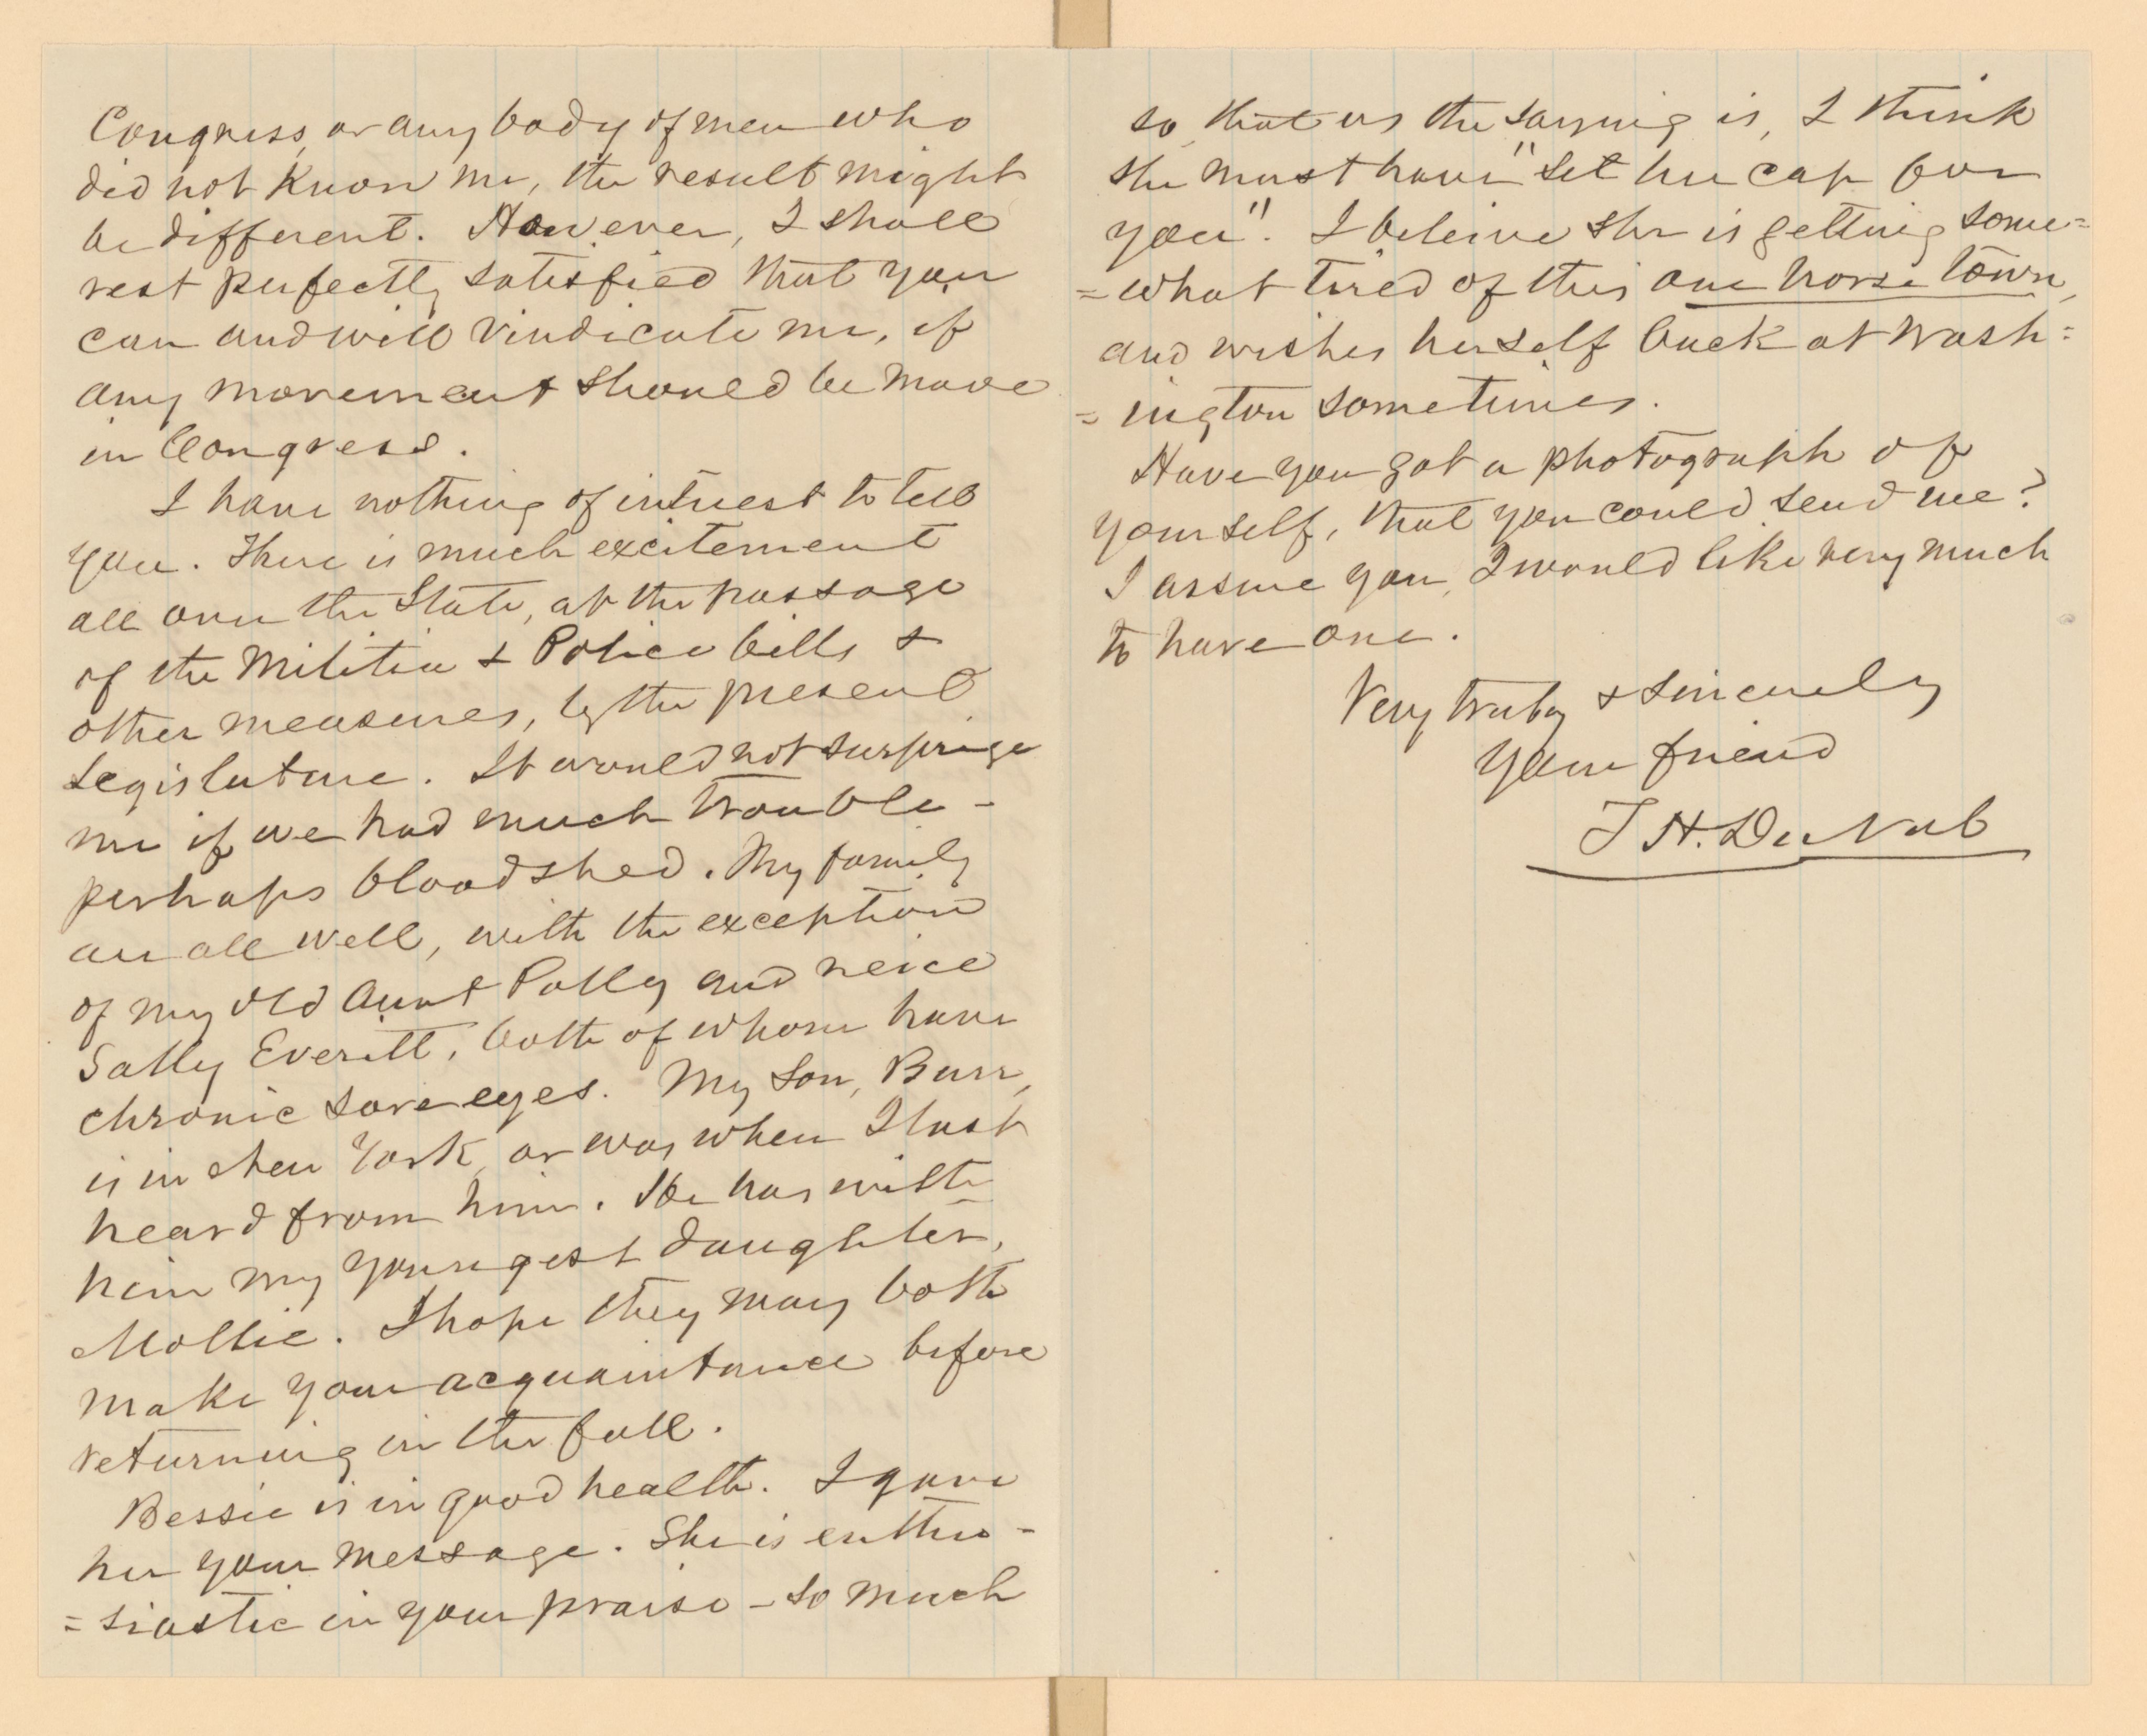 Congress, or any body of men who
did not know me, the result might
be different. However, I shall
rest perfectly satisfied that you
can and will vindicate me, if
any movement should be made
in Congress.
I have nothing of interest to tell
you. There is much excitement
all over the State, at the passage
of the Militia & Police bills &
other measures, by the present
Legislature. It would not surprize
me if we had much trouble -
perhaps bloodshed. My family
are all well, with the exception
of my old Aunt Polly and neice
Sally Everitt, both of whom have
chronic sore eyes. My son, Burr,
is in New York, or was when I last
heard from him. He has with
him my youngest daughter,
Mollie. I hope they may both
make your acquaintance before
returning in the fall.
Bessie is in good health. I gave
her your message. She is enthu-
=siastic in your praise - so much
so, that as the saying is, I think
she must have "set her cap for
you". I beleive she is getting some=
=what tired of this one horse town,
and wishes herself back at Wash=
=ington sometimes.
Have you got a photograph of
yourself, that you could send me?
I assure you, I would like very much
to have one.
Very truly & sincerely
Your friend
T H. DuVal